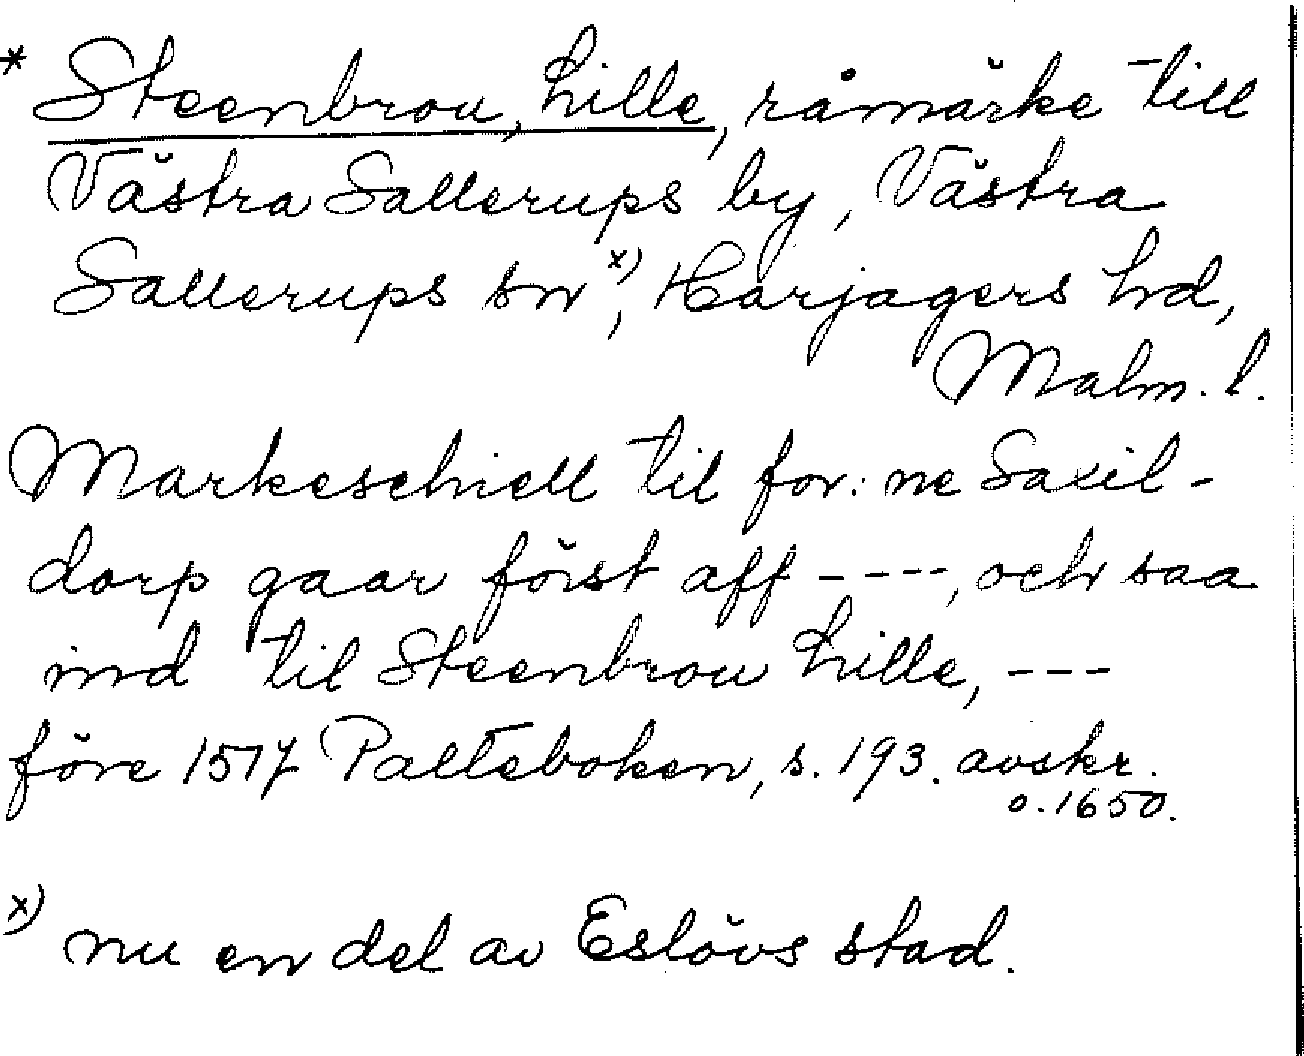 * Steenbrou, Lille, råmärke till
Västra Sallerups by, Västra
Sallerups sn x), Harjagers hd,
Malm. l.
Markeschiell til for: ne Saxil-
dorp gaar först aff ----, och saa
ind til Steenbrou Lille, ---
före 1517 Palteboken, s. 193. avskr.
o. 1650.
x) nu en del av Eslövs stad.